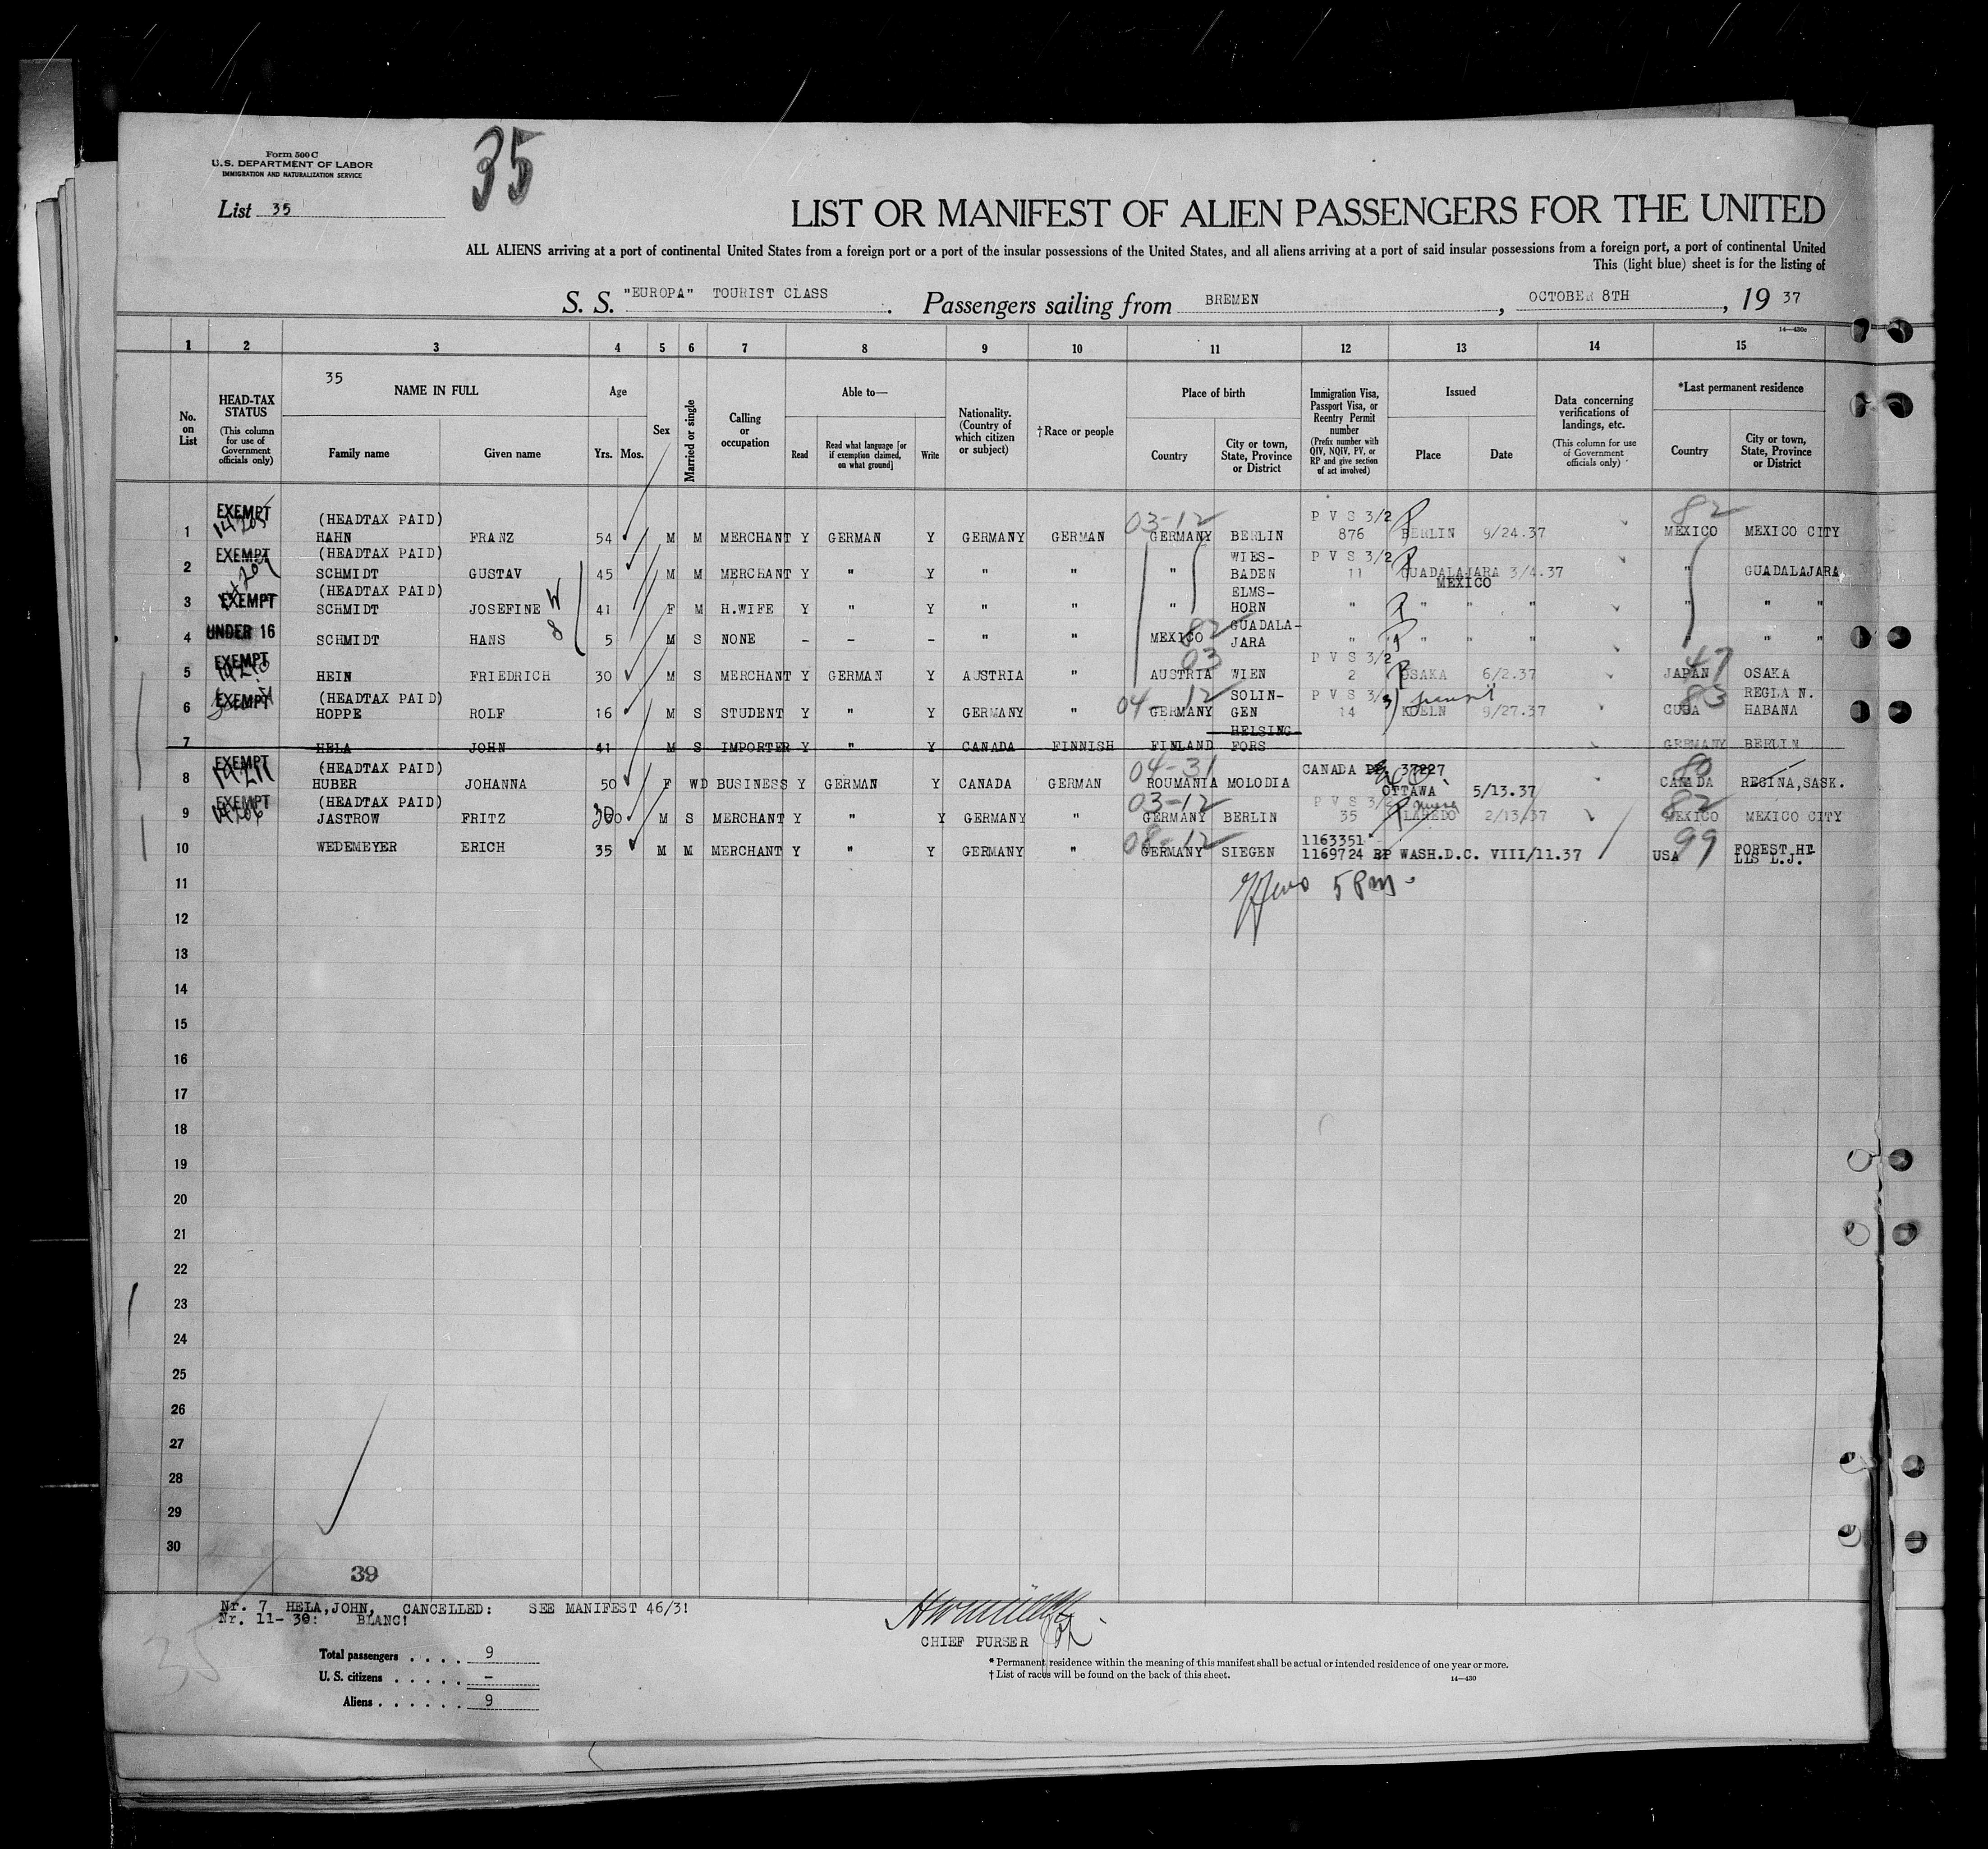 Form 500 C
U.S. DEPARTMENT OF LABOR
IMMIGRATION AND NATURALIZATION SERVICE
35
List 35
LIST OR MANIFEST OF ALIEN PASSENGERS FOR THE UNITED
ALL ALIENS arriving at a port of continental United States from a foreign port or a port of the insular possessions of the United States, and all aliens arriving at a port of said insular possessions from a foreign port, a port of continental United
This (light blue) sheet is for the listing of
S. S. "EUROPA" TOURIST CLASS . Passengers sailing from BREMEN , OCTOBER 8TH , 19 37
14—430c
1 2 3 4 5 6 7 8 9 10 11 12 13 14 15
No. on List
HEAD-TAX STATUS (This column for use of Government officials only)
35
NAME IN FULL
Family name Given name
Age
Yrs. Mos.
Sex
Married or single
Calling or occupation
Able to—
Read Read what language [or if exemption claimed, on what ground] Write
Nationality. (Country of which citizen or subject)
† Race or people
Place of birth
Country City or town, State, Province or District
Immigration Visa, Passport Visa, or Reentry Permit number (Prefix number with QIV, NQIV, PV, or RP and give section of act involved)
Issued
Place Date
Data concerning verifications of landings, etc. (This column for use of Government officials only)
*Last permanent residence
Country City or town, State, Province or District
EXEMPT (HEADTAX PAID) 03-12 P V S 3/2 82
1 HAHN FRANZ 54 M M MERCHANT Y GERMAN Y GERMANY GERMAN GERMANY BERLIN 876 BERLIN 9/24.37 MEXICO MEXICO CITY
EXEMPT (HEADTAX PAID) WIES- P V S 3/2
2 SCHMIDT GUSTAV 45 M M MERCHANT Y " Y " " " BADEN 11 GUADALAJARA 3/4.37 " GUADALAJARA
MEXICO
(HEADTAX PAID) ELMS-
3 EXEMPT SCHMIDT JOSEFINE W 41 F M H.WIFE Y " Y " " " HORN " " " " " " "
UNDER 16 8 82 GUADALA-
4 SCHMIDT HANS 5 M S NONE - - - " " MEXICO JARA " " " " " " "
EXEMPT 03 P V S 3/2 47
5 HEIN FRIEDRICH 30 M S MERCHANT Y GERMAN Y AUSTRIA " AUSTRIA WIEN 2 OSAKA 6/2.37 JAPAN OSAKA
EXEMPT (HEADTAX PAID) 04-12 SOLIN- P V S 3/3 transit 83 REGLA N.
6 HOPPE ROLF 16 M S STUDENT Y " Y GERMANY " GERMANY GEN 14 KOELN 9/27.37 CUBA HABANA
HELSING
7 HELA JOHN 41 M S IMPORTER Y " Y CANADA FINNISH FINLAND FORS GERMANY BERLIN
EXEMPT (HEADTAX PAID) 04-31 CANADA 37227 80
8 HUBER JOHANNA 50 F WD BUSINESS Y GERMAN Y CANADA GERMAN ROUMANIA MOLODIA OTTAWA 5/13.37 CANADA REGINA,SASK.
EXEMPT (HEADTAX PAID) 03-12 P V S 3/2 82
9 JASTROW FRITZ 30 M S MERCHANT Y " Y GERMANY " GERMANY BERLIN 35 LAREDO 2/13/37 MEXICO MEXICO CITY
08-12 1163351 99 FOREST HI
10 WEDEMEYER ERICH 35 M M MERCHANT Y " Y GERMANY " GERMANY SIEGEN 1169724 RP WASH.D.C. VIII/11.37 USA LLS L.J.
5 Pm
11
12
13
14
15
16
17
18
19
20
21
22
23
24
25
26
27
28
29
30
39
Nr. 7 HELA,JOHN, CANCELLED: SEE MANIFEST 46/3!
Nr. 11-30: BLANC!
CHIEF PURSER
Total passengers . . . . 9
U. S. citizens . . . . . -
Aliens . . . . . . 9
* Permanent residence within the meaning of this manifest shall be actual or intended residence of one year or more.
† List of races will be found on the back of this sheet.
14—430
35